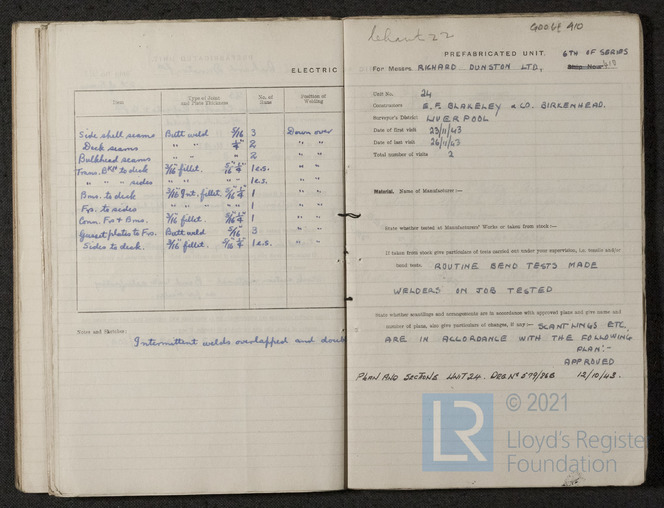 ELECTRIC
Item Type of Joint and Plate Thickness No. of Runs Position of Welding
Side shell seams Butt weld 5/16 3 Down over
Deck seams " " 1/4" 2 " "
Bulkhead seams " " " 2 " "
Trans. Bkh to deck 3/16 fillet. 5/16" 1/4" 1 e.s. " "
" " " sides " " " 1 e.s. " "
Bms. to deck 3/16 Int. fillet. 5/16" 1/4" 1 " "
Frs. to sides " " 1 " "
Conn. Frs & Bms. 3/16 fillet 5/16" 1/4" 1 " "
Gusset plates to Frs. Butt weld 5/16" 3 " "
Sides to deck. 3/16 fillet. 5/16" 1/4" 1 e.s. " "
Notes and Sketches:
Intermittent welds overlapped and doub
Chant 22
PREFABRICATED UNIT. 6TH OF SERIES
For Messrs. RICHARD DUNSTON LTD, Ship No.
Unit No. 24
Constructors E. F. BLAKELEY & CO. BIRKENHEAD.
Surveyor's District LIVERPOOL
Date of first visit 23/11/43
Date of last visit 26/11/43
Total number of visits 2
Material. Name of Manufacturer :—
State whether tested at Manufacturers' Works or taken from stock :—
If taken from stock give particulars of tests carried out under your supervision, i.e. tensile and/or
bend tests. ROUTINE BEND TESTS MADE
WELDERS ON JOB TESTED
State whether scantlings and arrangements are in accordance with approved plans and give name and
number of plans, also give particulars of changes, if any :— SCANTLINGS ETC.
ARE IN ACCORDANCE WITH THE FOLLOWING
PLAN:-
APPROVED
PLAN AND SECTIONS UNIT 24. DRG Nº 599/86B 12/10/43.
LR
© 2021
Lloyd's Register
Foundation